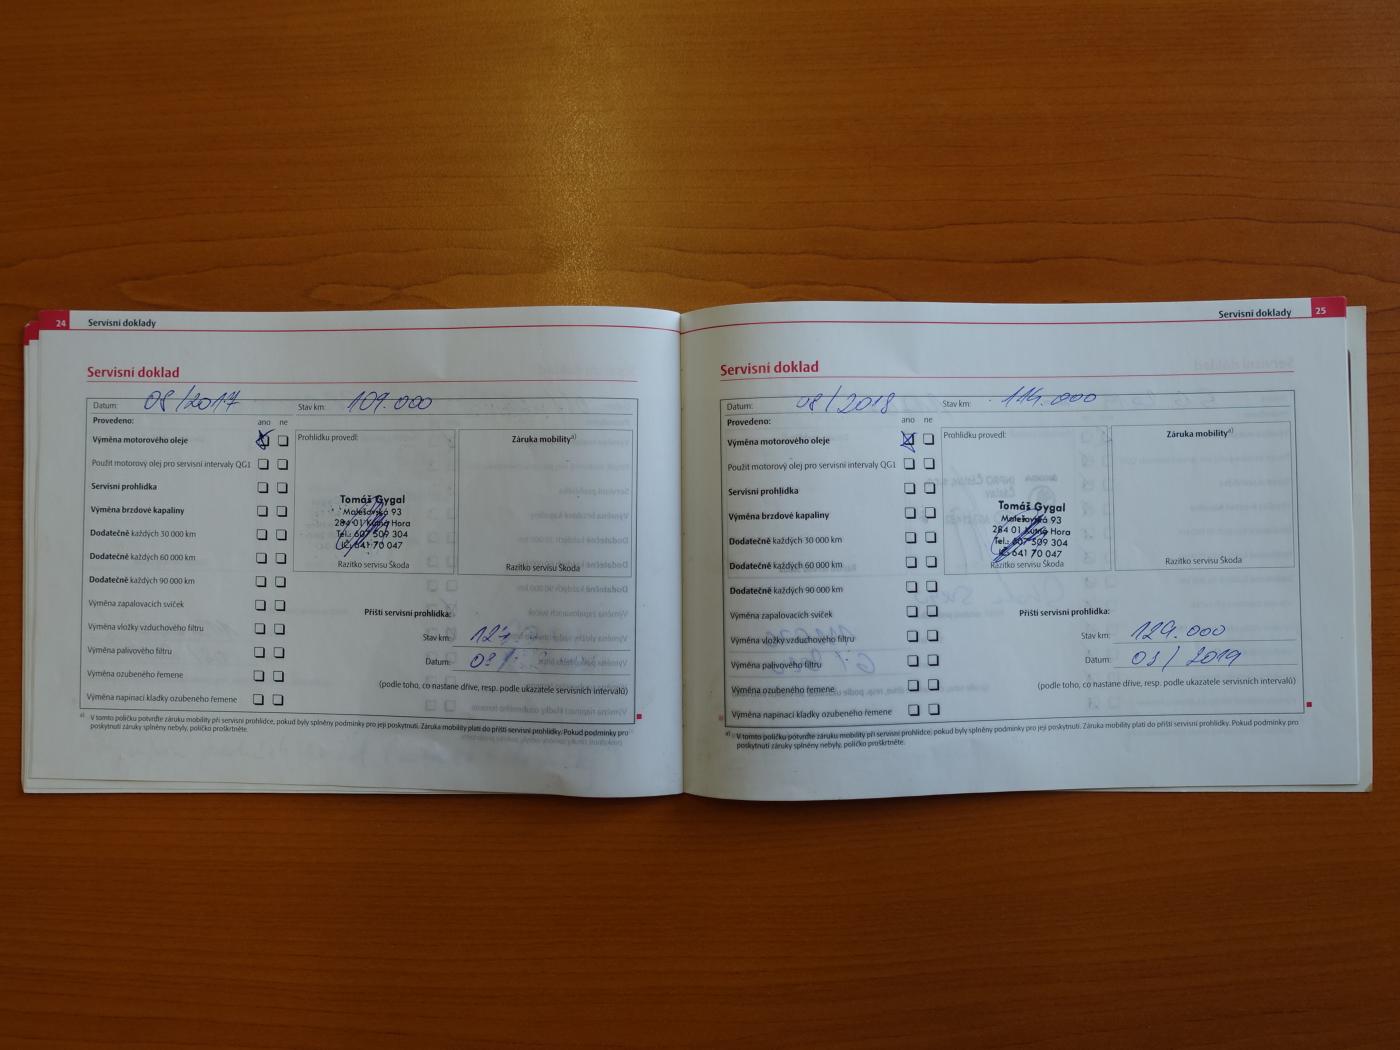 24 Servisní doklady
Servisní doklad
Datum: 08/2017 Stav km: 109.000
Provedeno: ano ne
Výměna motorového oleje
Použit motorový olej pro servisní intervaly QG1
Servisní prohlídka
Výměna brzdové kapaliny
Dodatečně každých 30 000 km
Dodatečně každých 60 000 km
Dodatečně každých 90 000 km
Výměna zapalovacích svíček
Výměna vložky vzduchového filtru
Výměna palivového filtru
Výměna ozubeného řemene
Výměna napínací kladky ozubeného řemene
Prohlídku provedl:
Tomáš Gygal
Malešovská 93
284 01 Kutná Hora
Tel.: 607 509 304
IČ: 641 70 047
Razítko servisu Škoda
Záruka mobility a)
Razítko servisu Škoda
Příští servisní prohlídka:
Stav km:
Datum:
(podle toho, co nastane dříve, resp. podle ukazatele servisních intervalů)
a) V tomto políčku potvrďte záruku mobility při servisní prohlídce, pokud byly splněny podmínky pro její poskytnutí. Záruka mobility platí do příští servisní prohlídky. Pokud podmínky pro
poskytnutí záruky splněny nebyly, políčko proškrtněte.
Servisní doklady 25
Servisní doklad
Datum: 08/2018 Stav km: 114.000
Provedeno: ano ne
Výměna motorového oleje
Použit motorový olej pro servisní intervaly QG1
Servisní prohlídka
Výměna brzdové kapaliny
Dodatečně každých 30 000 km
Dodatečně každých 60 000 km
Dodatečně každých 90 000 km
Výměna zapalovacích svíček
Výměna vložky vzduchového filtru
Výměna palivového filtru
Výměna ozubeného řemene
Výměna napínací kladky ozubeného řemene
Prohlídku provedl:
Tomáš Gygal
Malešovská 93
284 01 Kutná Hora
Tel.: 607 509 304
IČ: 641 70 047
Razítko servisu Škoda
Záruka mobility a)
Razítko servisu Škoda
Příští servisní prohlídka:
Stav km: 129.000
Datum: 08/2019
(podle toho, co nastane dříve, resp. podle ukazatele servisních intervalů)
a) V tomto políčku potvrďte záruku mobility při servisní prohlídce, pokud byly splněny podmínky pro její poskytnutí. Záruka mobility platí do příští servisní prohlídky. Pokud podmínky pro
poskytnutí záruky splněny nebyly, políčko proškrtněte.